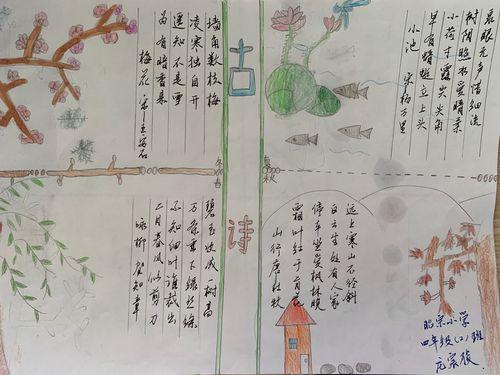 墙角数枝梅
凌寒独自开
遥知不是雪
为有暗香来
梅花 宋王安石
古诗
泉眼无声惜细流
树阴照水爱晴柔
小荷才露尖尖角
早有蜻蜓立上头
小池 宋杨万里
冬春
夏秋
碧玉妆成一树高
万条垂下绿丝绦
不知细叶谁裁出
二月春风似剪刀
咏柳 贺知章
远上寒山石径斜
白云生处有人家
停车坐爱枫林晚
霜叶红于二月花
山行 唐杜牧
昭宗小学
四年级(2)班